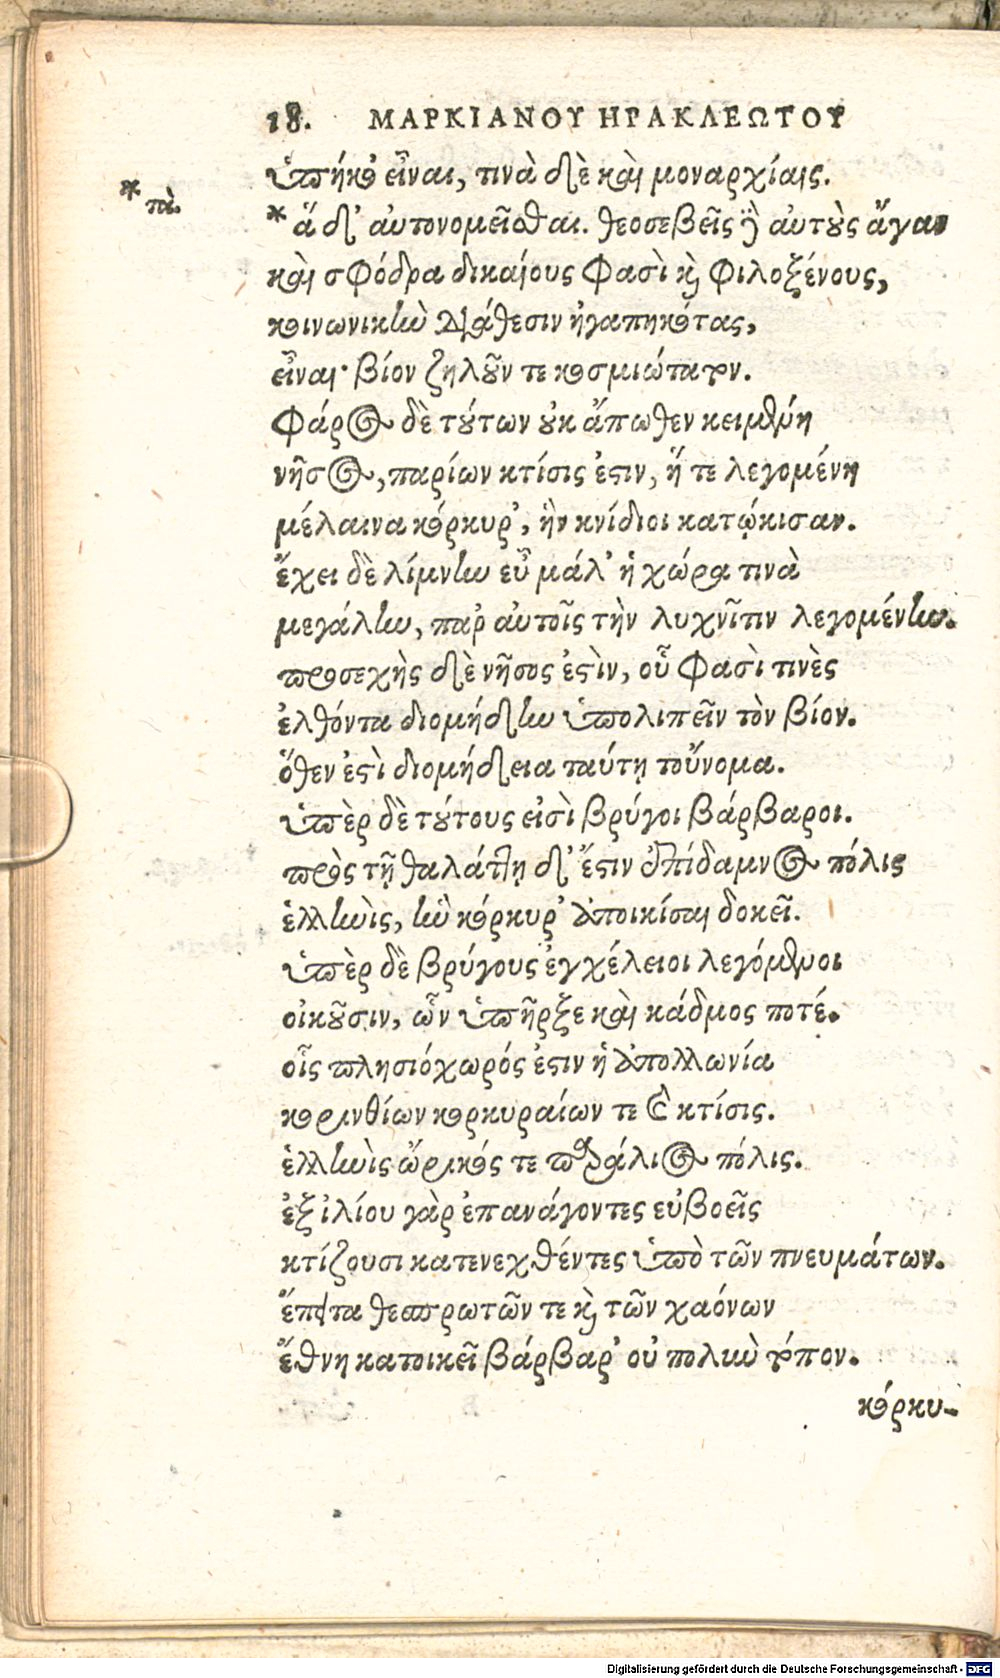 18. ΜΑΡΚΙΑΝΟΥ ΗΡΑΚΛΕΩΤΟΥ
ὑπήκο εἶναι, τινὰ δὲ καὶ μοναρχίαις.
* πὰ.
* ἅ δ' αὐτονομεῖσθαι. θεοσεβεῖς δ' αὐτοὺς ἄγαν
καὶ σφόδρα δικαίους φασὶ καὶ φιλοξένους,
κοινωνικὴν διάθεσιν ἠγαπηκότας,
εἶναι· βίον ζηλοῦν τε κοσμιώτατον.
Φάρος δὲ τούτων οὐκ ἄπωθεν κειμένη
νῆσος, παρίων κτίσις ἐστιν, ἥ τε λεγομένη
μέλαινα κόρκυρ', ἣν κνίδιοι κατῴκισαν.
ἔχει δὲ λίμνην εὖ μάλ' ἡ χώρα τινὰ
μεγάλην, παρ' αὐτοῖς τὴν λυχνῖτιν λεγομένην.
προσεχὴς δὲ νῆσος ἐστὶν, οὗ φασὶ τινὲς
ἐλθόντα διομήδην ὑπολιπεῖν τὸν βίον.
ὅθεν ἐστὶ διομήδεια ταύτῃ τοὔνομα.
ὑπὲρ δὲ τούτους εἰσὶ βρύγοι βάρβαροι.
πρὸς τῇ θαλάττῃ δ' ἔστιν ἐπίδαμνος πόλις
ἑλληνὶς, ἣν κόρκυρ' ἀποικίσαι δοκεῖ.
ὑπὲρ δὲ βρύγους ἐγχέλειοι λεγόμενοι
οἰκοῦσιν, ὧν ὑπῆρξε καὶ κάδμος ποτέ.
οἷς πλησιόχωρός ἐστιν ἡ ἀπολλωνία
κορινθίων κορκυραίων τε καὶ κτίσις.
ἑλληνὶς ὤρικός τε παράλιος πόλις.
ἐξ ἰλίου γὰρ ἐπανάγοντες εὐβοεῖς
κτίζουσι κατενεχθέντες ὑπὸ τῶν πνευμάτων.
ἔπειτα θεσπρωτῶν τε καὶ τῶν χαόνων
ἔθνη κατοικεῖ βάρβαρ' οὐ πολὺν τόπον.
κόρκυ-
Digitalisierung gefördert durch die Deutsche Forschungsgemeinschaft - DFG